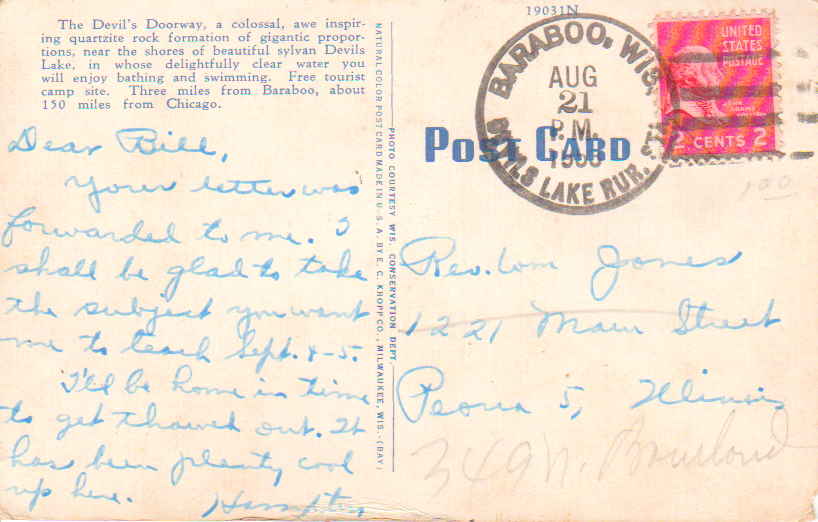 The Devil's Doorway, a colossal, awe inspir-
ing quartzite rock formation of gigantic propor-
tions, near the shores of beautiful sylvan Devils
Lake, in whose delightfully clear water you
will enjoy bathing and swimming. Free tourist
camp site. Three miles from Baraboo, about
150 miles from Chicago.
Dear Bill,
Your letter was
forwarded to me. I
shall be glad to take
the subject you want
me to teach Sept. 4-5.
I'll be home in time
to get thawed out. It
has been plenty cool
up here. Hampton
NATURAL COLOR POST CARD MADE IN U. S. A. BY E. C. KROPP CO., MILWAUKEE, WIS.-(BAY)
PHOTO COURTESY WIS. CONSERVATION DEPT.
19031N
POST CARD
BARABOO, WIS.
AUG
21
P. M.
LAKE RUR. STA.
UNITED
STATES
POSTAGE
JOHN ADAMS
2 CENTS 2
1.00
Rev. Wm Jones
1221 Main Street
Peoria 5, Illinois
349 N.